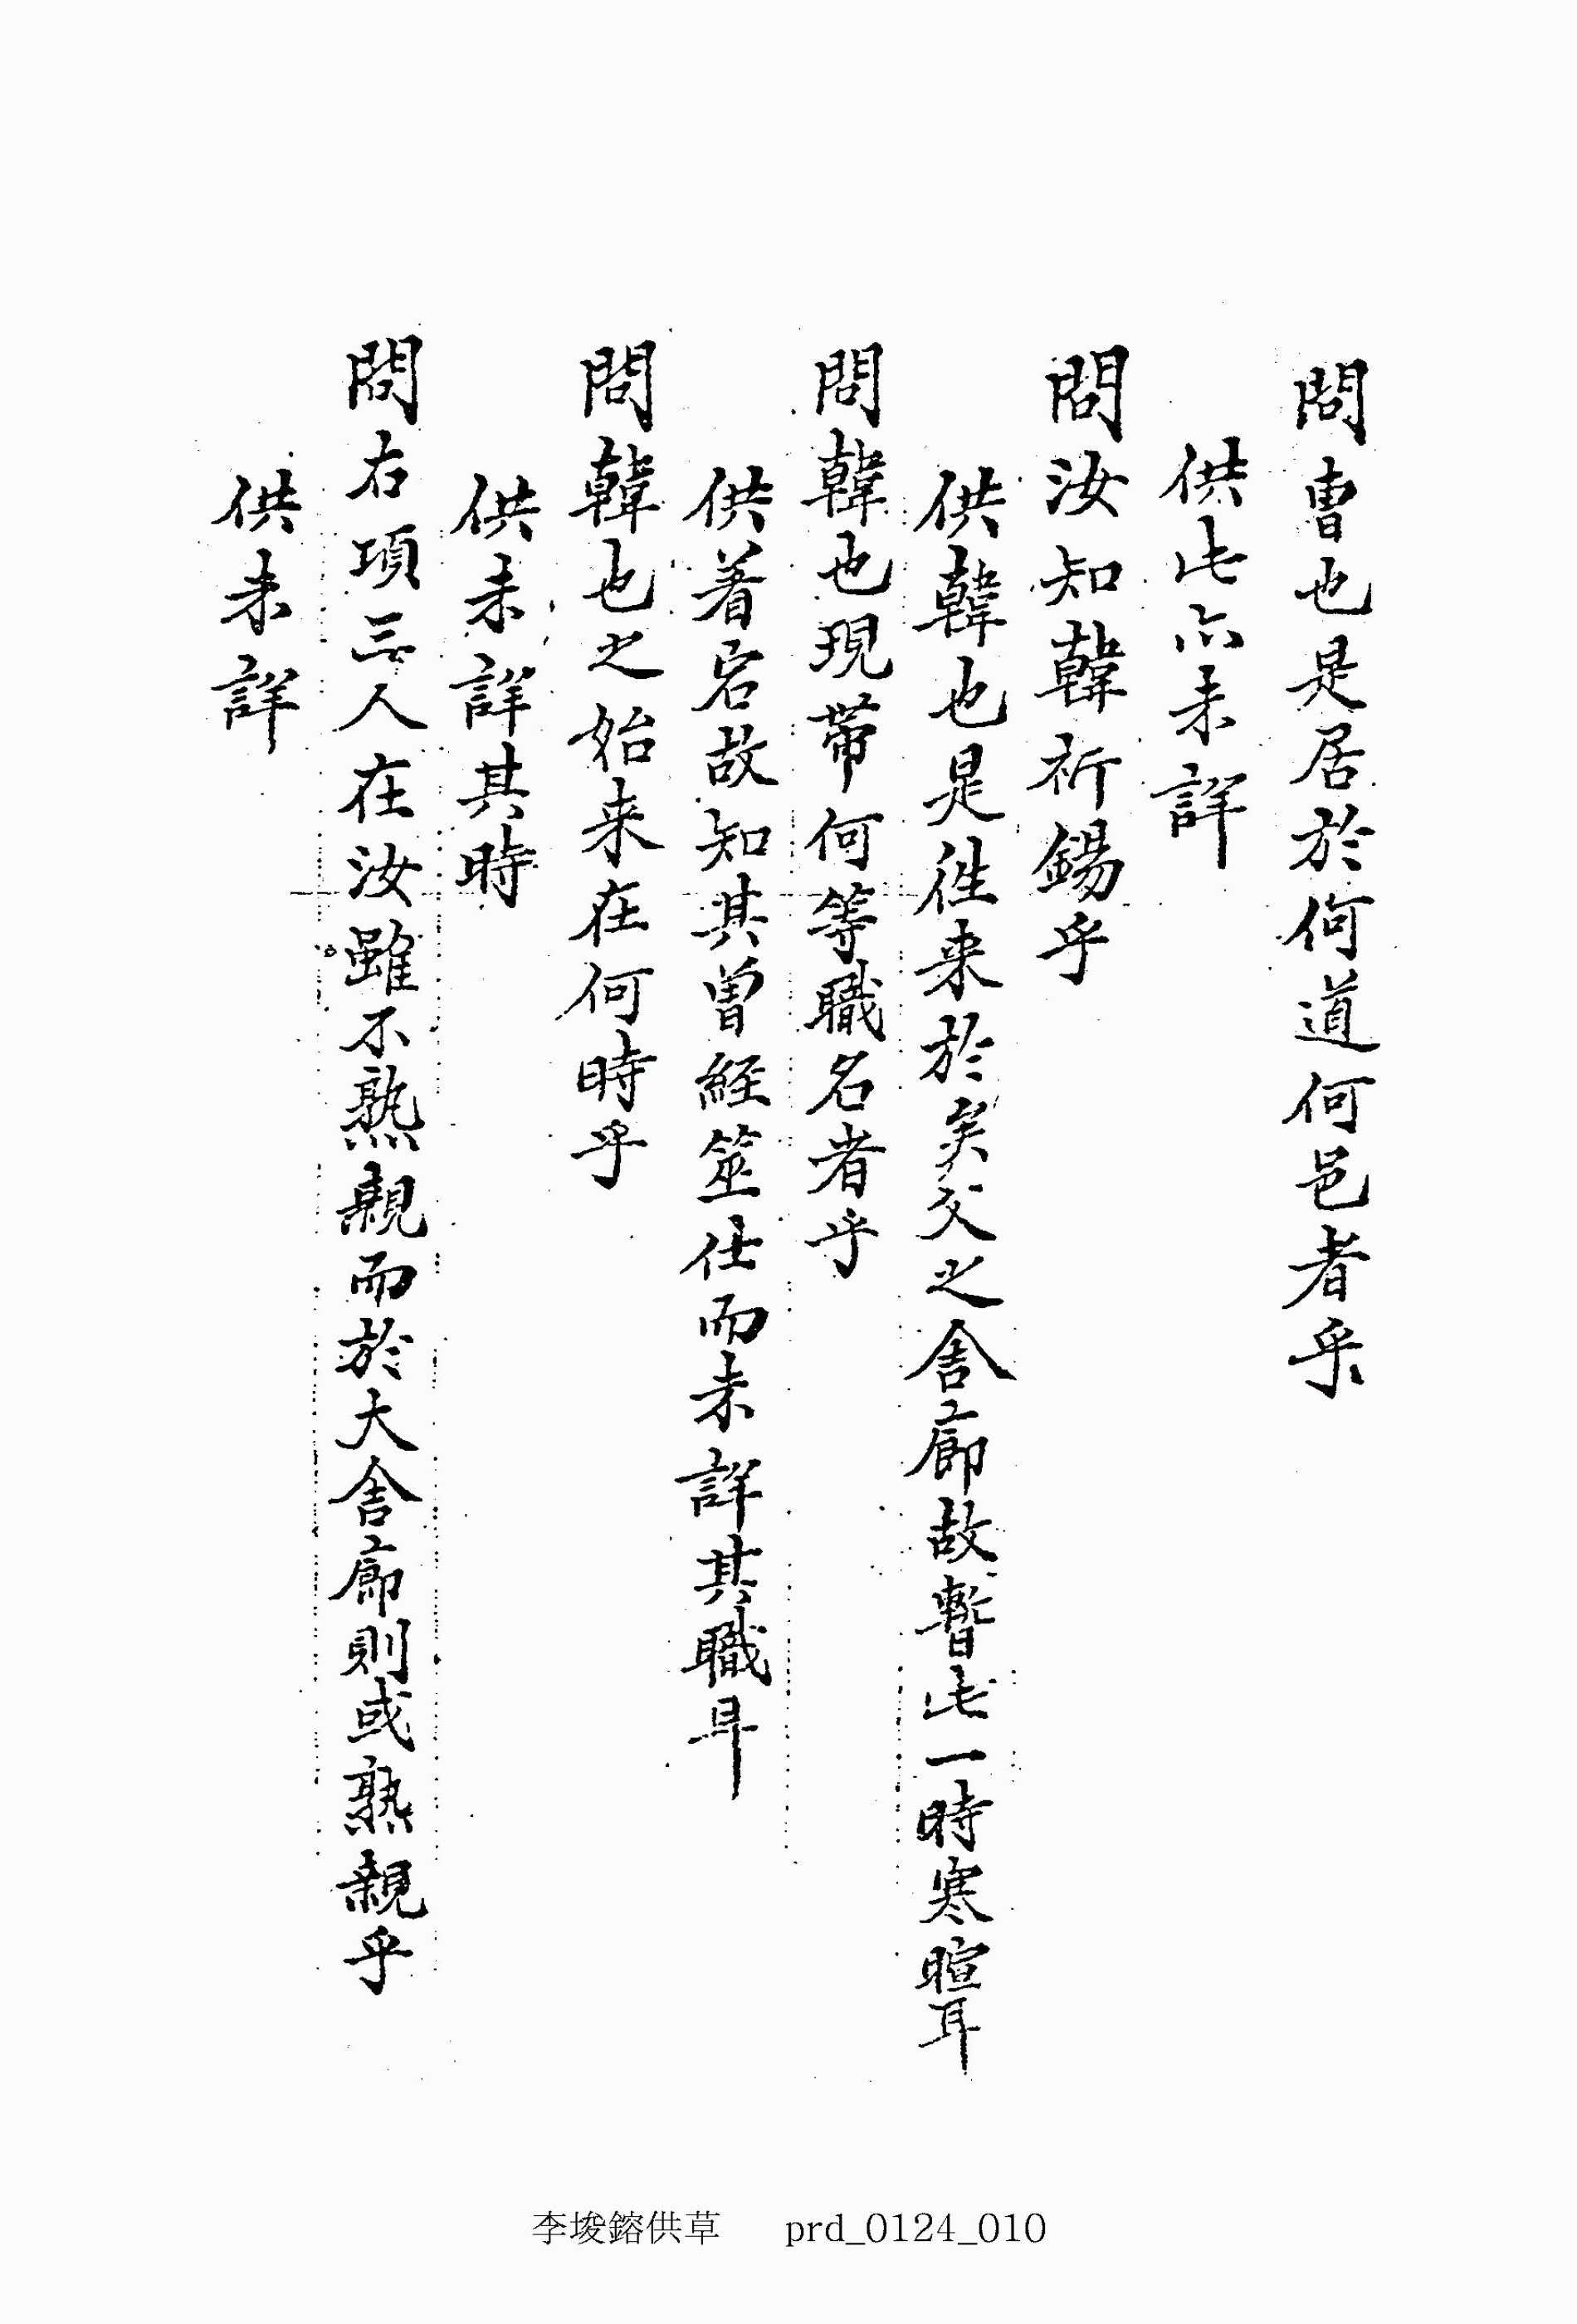 問曺也是居於何道何邑者乎
供此亦未詳
問汝知韓祈錫乎
供韓也是徃来於矣父之舍廊故暫此一時寒暄耳
問韓也現帶何等職名者乎
供着宕故知其曽経筮仕而未詳其職耳
問韓也之始来在何時乎
供未詳其時
問右項三人在汝雖不熟親而於大舍廊則或熟親乎
供未詳
李埈鎔供草 prd_0124_010